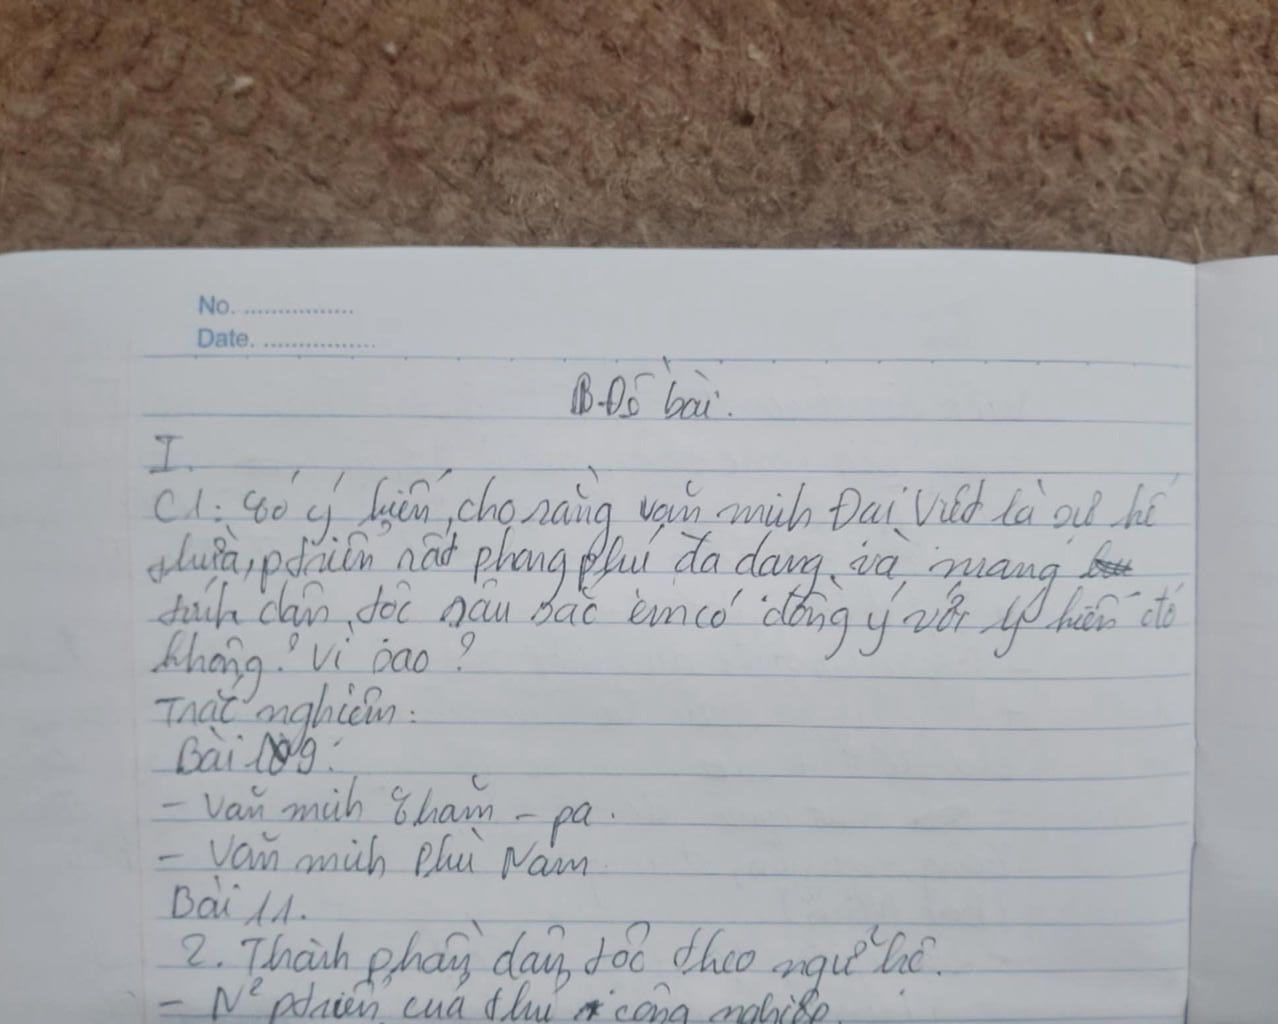 No. ................
Date. ................
B-Đề bài.
I.
C1: Có ý kiến, cho rằng văn minh Đại Việt là sự kế
thừa, ptriển rất phong phú đa dạng, và mang
tính dân tộc sâu sắc em có đồng ý với ý kiến đó
không? Vì sao?
Trắc nghiệm:
Bài 9:
- Văn minh Chăm - pa.
- Văn minh Phù Nam
Bài 11.
2. Thành phần dân tộc theo ngữ hệ.
- N² ptriển của thủ công nghiệp.